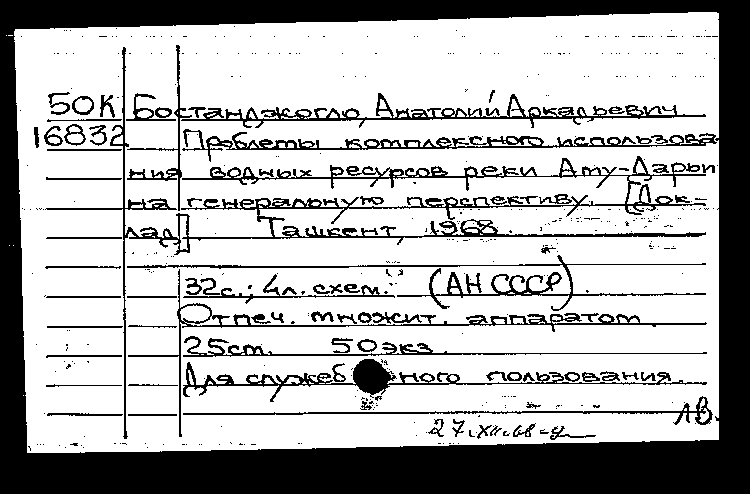 50К Бостанджогло, Анатолий Аркадьевич
16832 Проблемы комплексного использова-
ния водных ресурсов реки Аму-Дарьи
на генеральную перспективу. [Док-
лад]. Ташкент, 1968.
32с.; 4л. схем. (АН СССР).
Отпеч. множит. аппаратом.
25ст. 50экз.
Для служебного пользования.
ЛВ.
27.XII.68